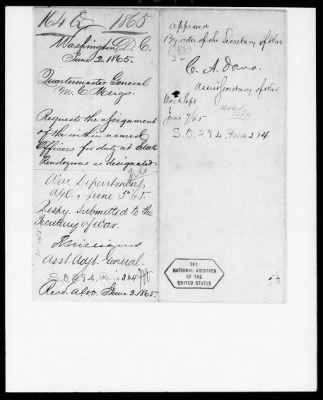 1865
Washington, D.C.
June 2. 1865.
Quartermaster General
M. C. Meigs.
Requests the assignment
of the within named
Officers for duty at State
Rendezvous as designated.
War Department,
A.G.O., June 5" 65.
Respy. submitted to the
Secretary of War.
Asst. Adjt. General.
S.O. 294. Par 34
Recd. A.G.O. June 3. 1865.
approved
By order of the Secretary of War
C. A. Dana.
Assist Secretary of War
War Dept
June 7/65
S.O. 294 Par 34
THE
NATIONAL ARCHIVES
OF THE
UNITED STATES